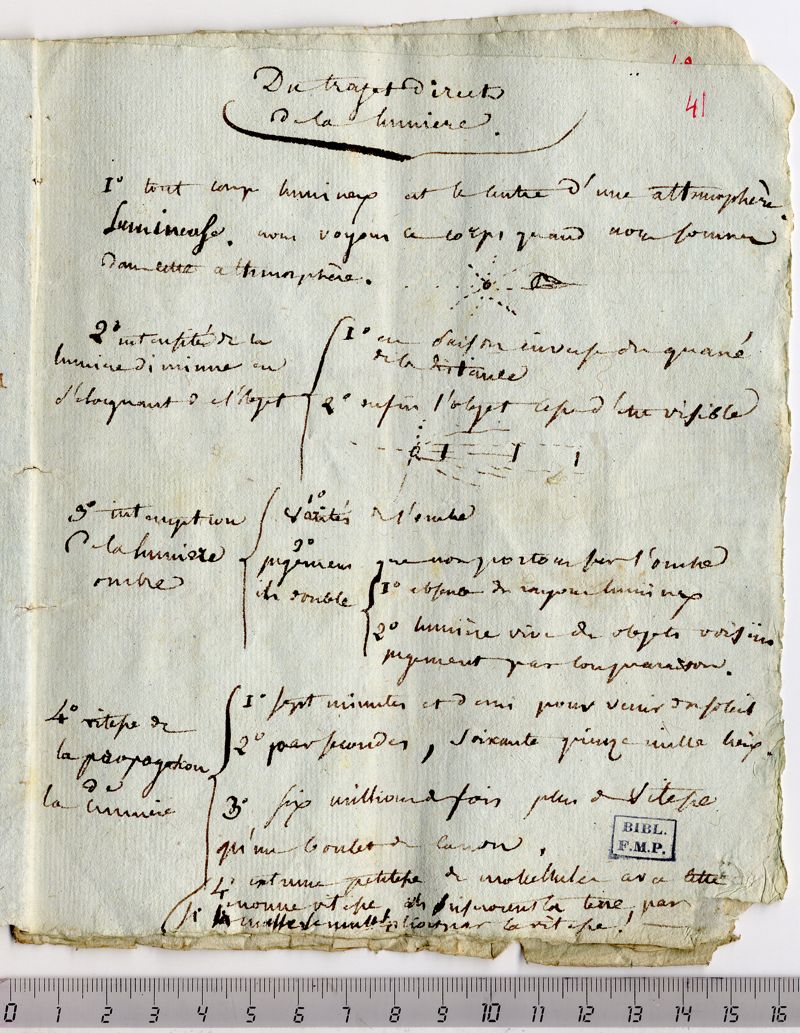 41
Du trajet direct
de la lumiere.
1° tout corps lumineux est le centre d'une attmosphère
Lumineuse. nous voyons ce corps quand nous sommes
dans cette attmosphère.
2° intensité de la
lumiere diminue en
s'éloignant de l'objet
1° en raison inverse du quarré
de la distance
2° enfin l'objet cesse d'être visible
3° interruption
de la lumiere
ombre
1°
variétés de l'ombre
2°
jugement que nous portons sur l'ombre
est double
1° absence de rayons lumineux
2° lumière vive des objets voisins
jugement par comparaison.
4° vitesse de
la propagation
de
la lumière
1° sept minutes et demi pour venir du soleil
2° par secondes, soixante quinze mille lieux.
3° six millions de fois plus de vitesse
qu'un boulet de canon.
4° extreme petitesse de molecules avec cette
enorme vitesse, la terre, par
la masse la vitesse!
BIBL.
F.M.P.
0 1 2 3 4 5 6 7 8 9 10 11 12 13 14 15 16